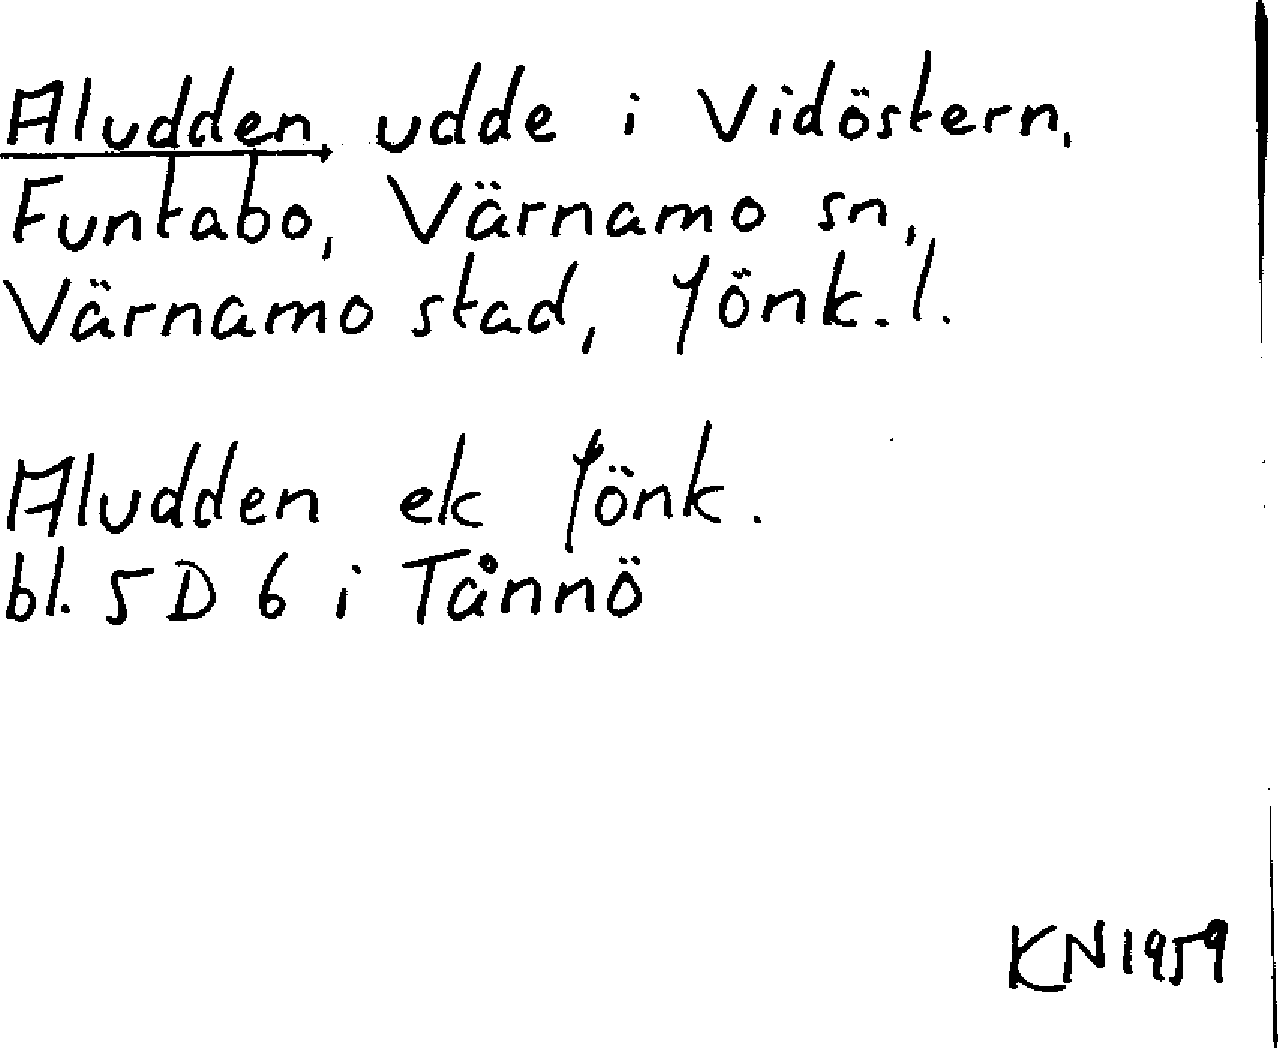 Aludden, udde i Vidöstern,
Funtabo, Värnamo sn,
Värnamo stad, Jönk. l.
Aludden ek Jönk.
bl. 5D 6 i Tånnö
KN 1959